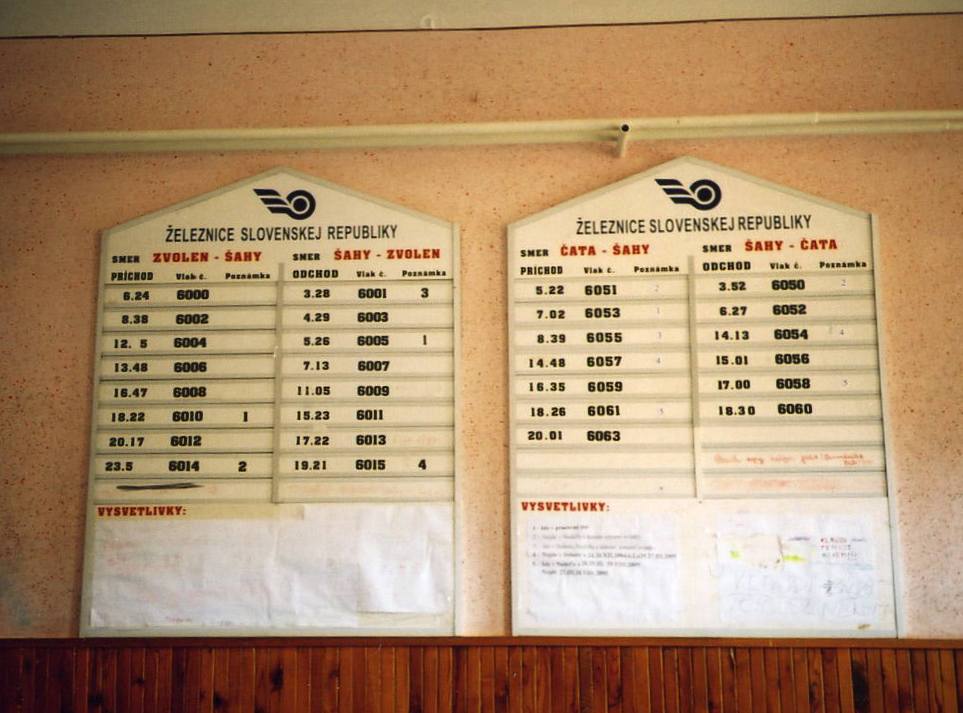 ŽELEZNICE SLOVENSKEJ REPUBLIKY
SMER ZVOLEN - ŠAHY
PRÍCHOD Vlak č. Poznámka
6.24 6000
8.38 6002
12. 5 6004
13.48 6006
16.47 6008
18.22 6010 1
20.17 6012
23.5 6014 2
SMER ŠAHY - ZVOLEN
ODCHOD Vlak č. Poznámka
3.28 6001 3
4.29 6003
5.26 6005 1
7.13 6007
11.05 6009
15.23 6011
17.22 6013
19.21 6015 4
VYSVETLIVKY:
ŽELEZNICE SLOVENSKEJ REPUBLIKY
SMER ČATA - ŠAHY
PRÍCHOD Vlak č. Poznámka
5.22 6051 2
7.02 6053 1
8.39 6055 3
14.48 6057 4
16.35 6059
18.26 6061 5
20.01 6063
SMER ŠAHY - ČATA
ODCHOD Vlak č. Poznámka
3.52 6050 2
6.27 6052
14.13 6054 4
15.01 6056
17.00 6058 5
18.30 6060
VYSVETLIVKY: